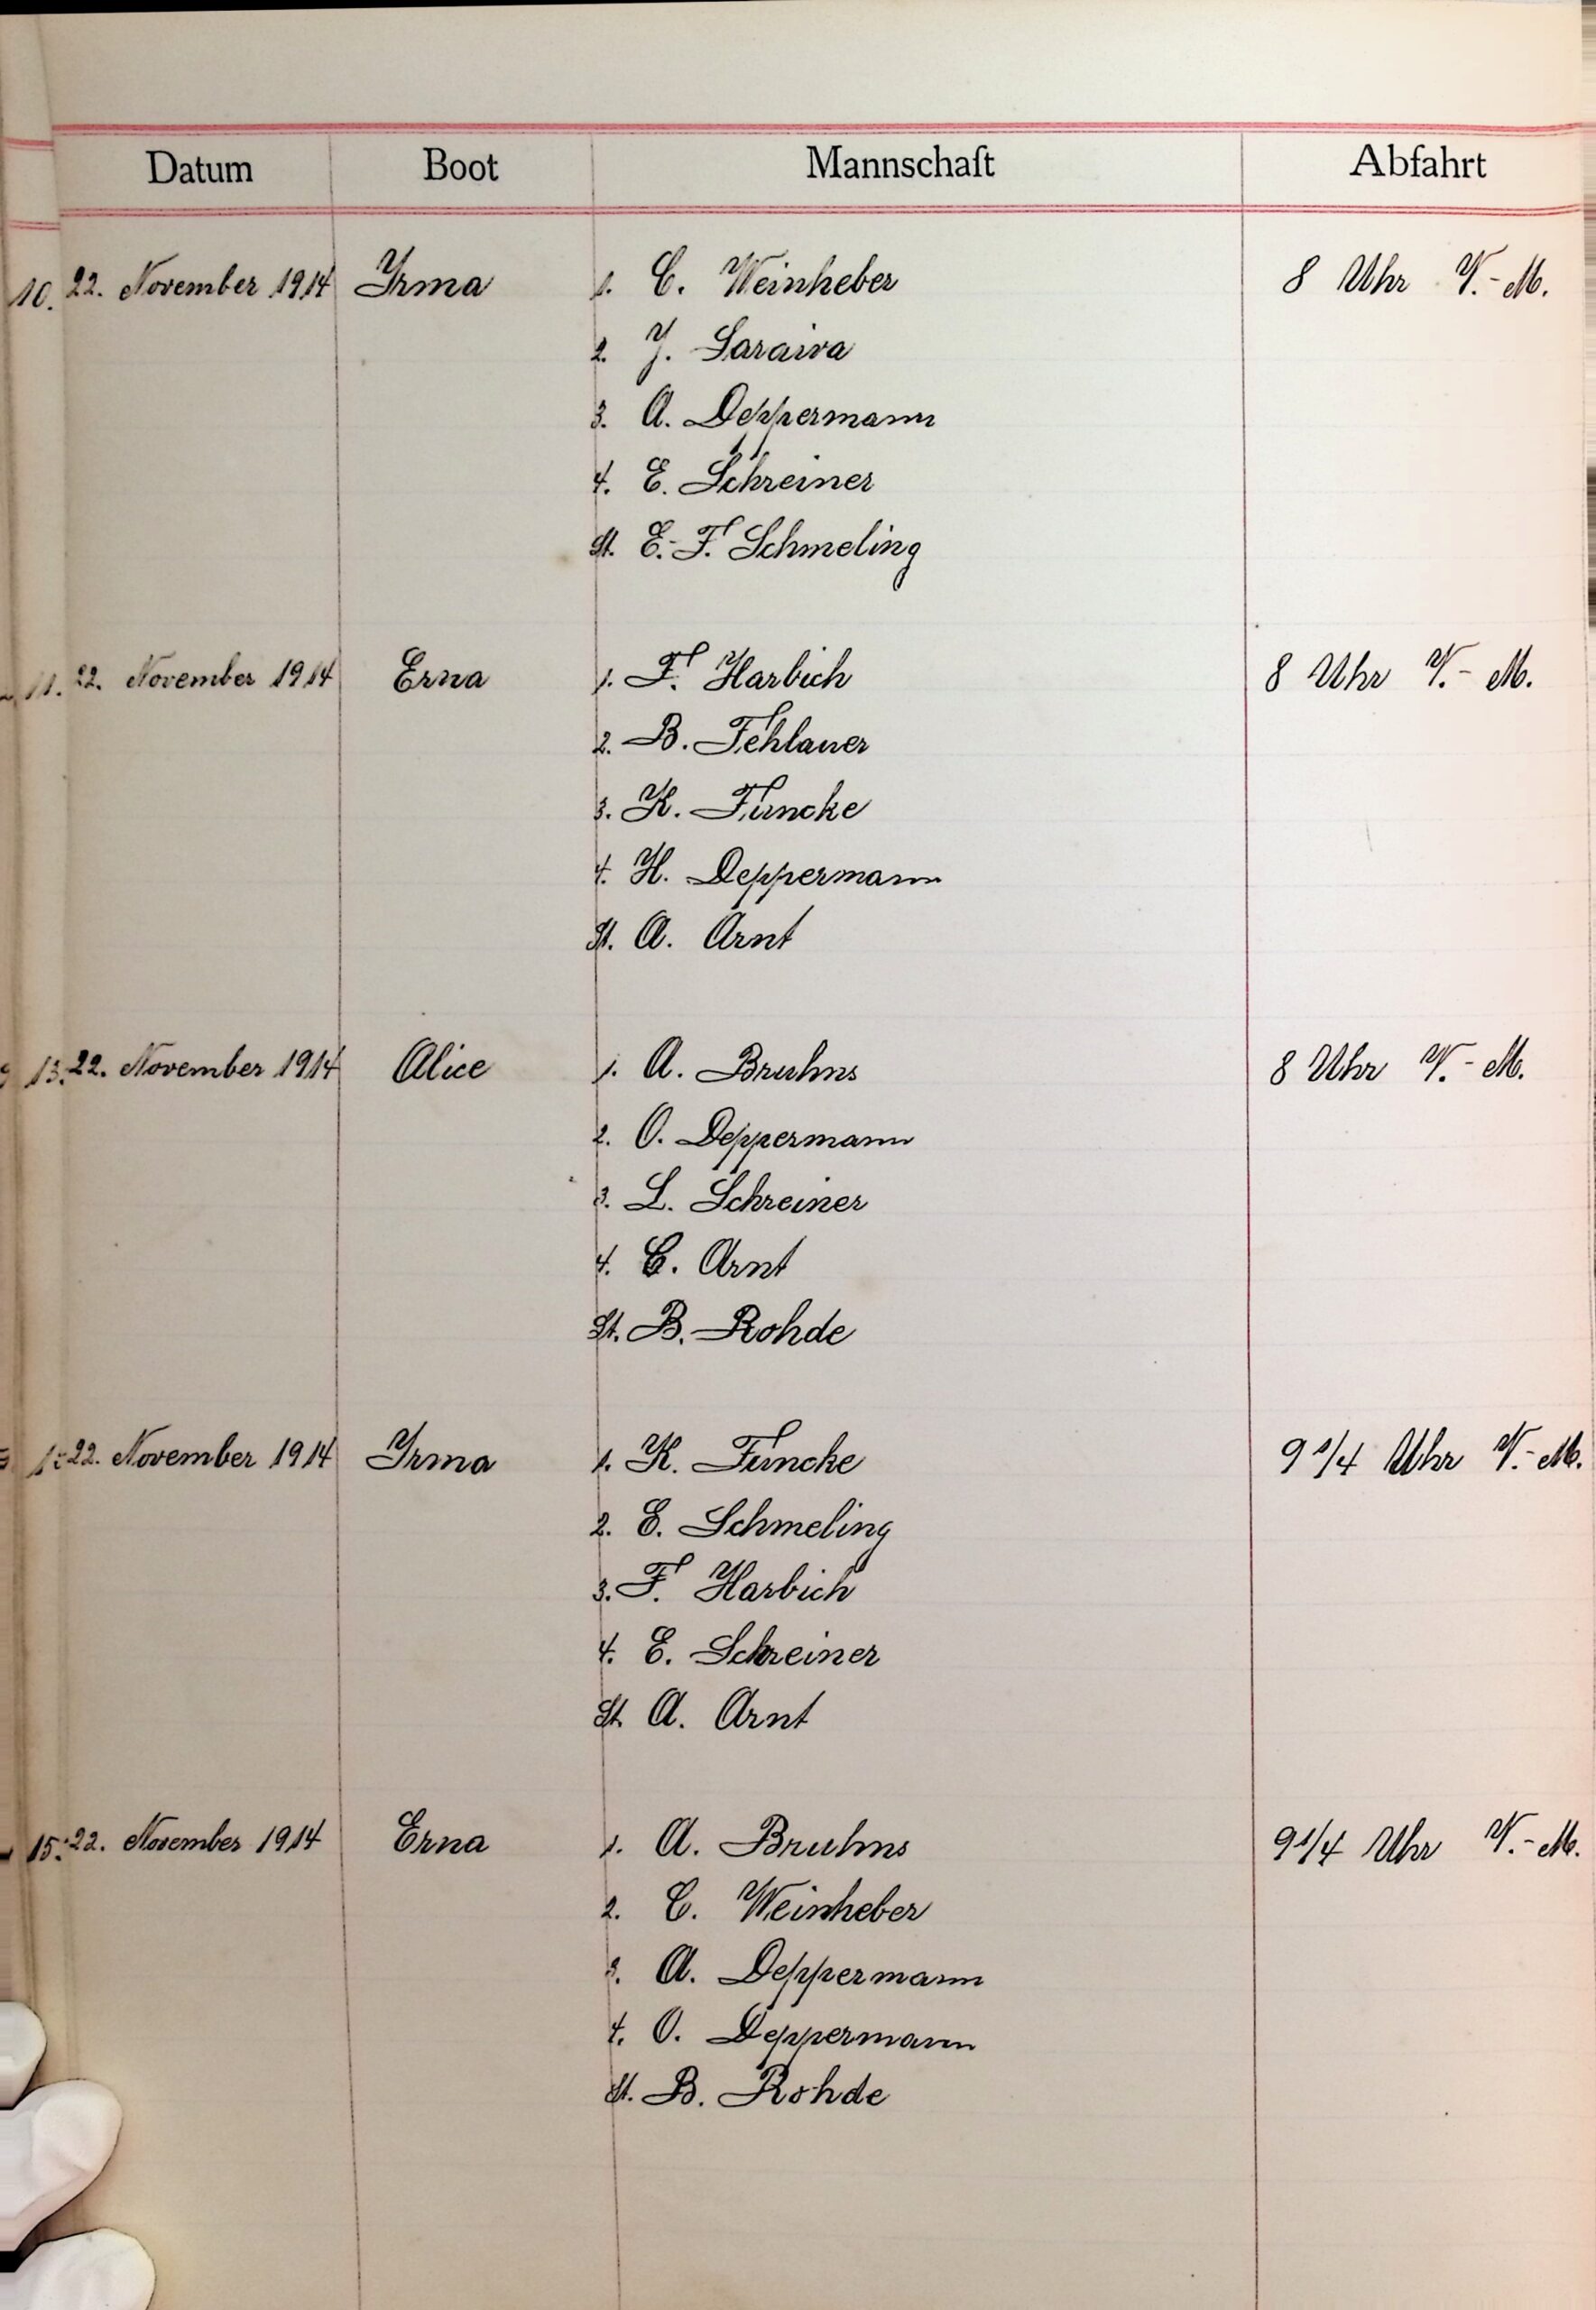 Datum Boot Mannschaft Abfahrt
10. 22. November 1914 Yrma 1. C. Weinheber 8 Uhr V.-M.
2. J. Saraiva
3. A. Deppermann
4. E. Schreiner
St. E.-F. Schmeling
11. 22. November 1914 Erna 1. F. Harbich 8 Uhr V.-M.
2. B. Fehlauer
3. K. Funcke
4. H. Deppermann
St. A. Arnt
13. 22. November 1914 Alice 1. A. Bruhns 8 Uhr V.-M.
2. O. Deppermann
3. L. Schreiner
4. C. Arnt
St. B. Rohde
22. November 1914 Yrma 1. K. Funcke 9 1/4 Uhr V.-M.
2. E. Schmeling
3. F. Harbich
4. E. Schreiner
St. A. Arnt
15. 22. November 1914 Erna 1. A. Bruhns 9 1/4 Uhr V.-M.
2. C. Weinheber
3. A. Deppermann
4. O. Deppermann
St. B. Rohde